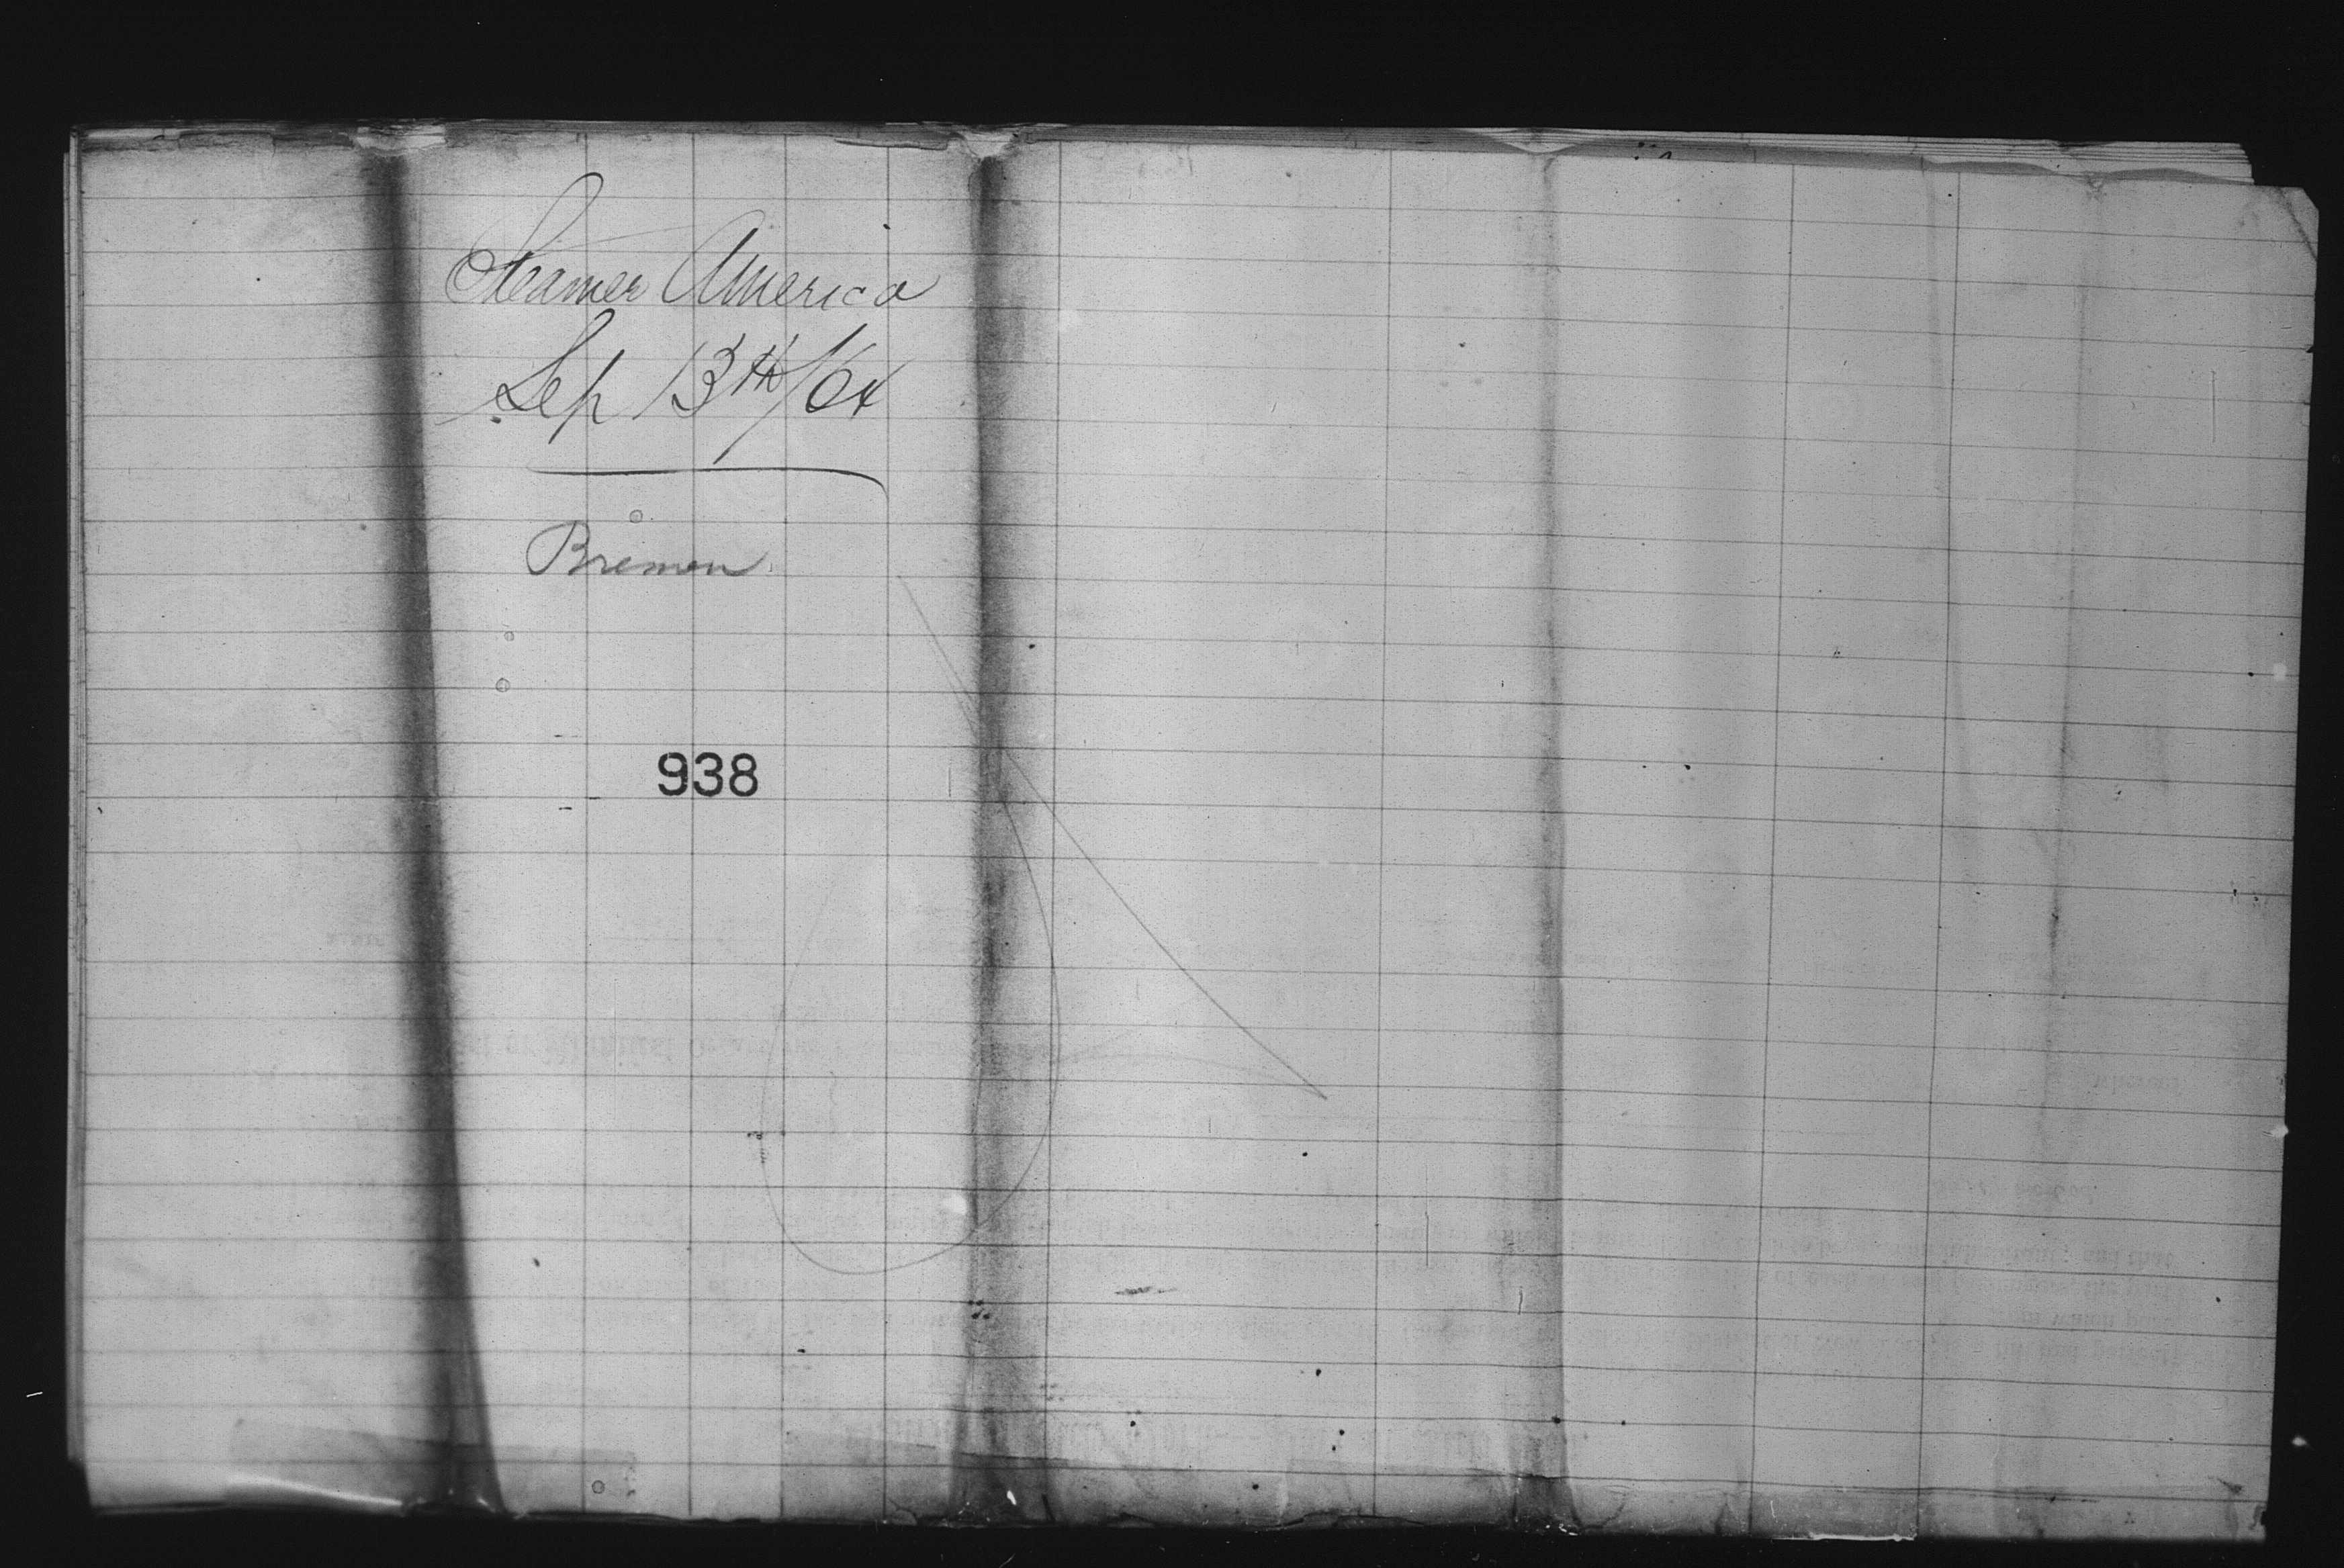 Steamer America
Sep 13th/64
Bremen
938